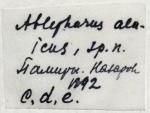 Ablepharus ala-
icus, sp. n.
Памиры. Назаров
1892
c, d, e.